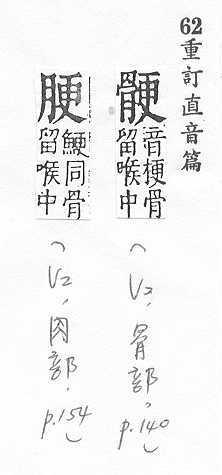 62重訂直音篇
骾音梗骨留喉中
(V2,骨部,p.140)
腰鯁同骨留喉中
(V2,肉部,p.154)